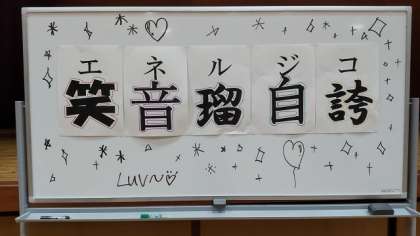 エネルジコ
笑音瑠自誇
LUV~